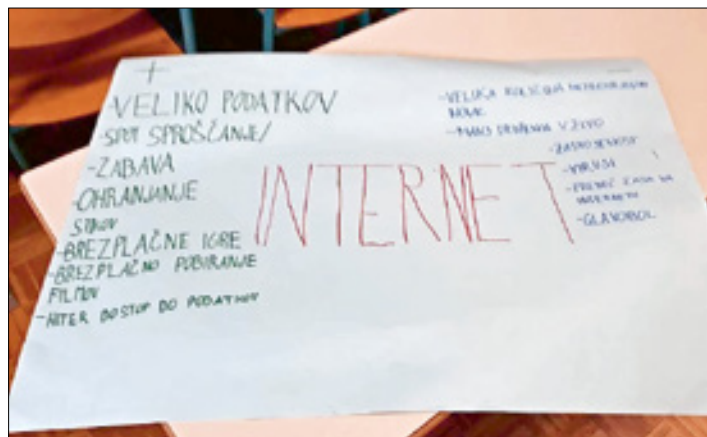 +
-VELIKO PODATKOV
-SPROŠČANJE/
-ZABAVA
-OHRANJANJE
STIKOV
-BREZPLAČNE IGRE
-BREZPLAČNO POBIRANJE
FILMOV
-HITER DOSTOP DO PODATKOV
INTERNET
—
-VELIKA KOLIČINA
-MALO DRUŽENJA V ŽIVO
-ZASVOJENOST
-VIRUSI
-PREVEČ ČASA NA
INTERNETU
-GLAVOBOL